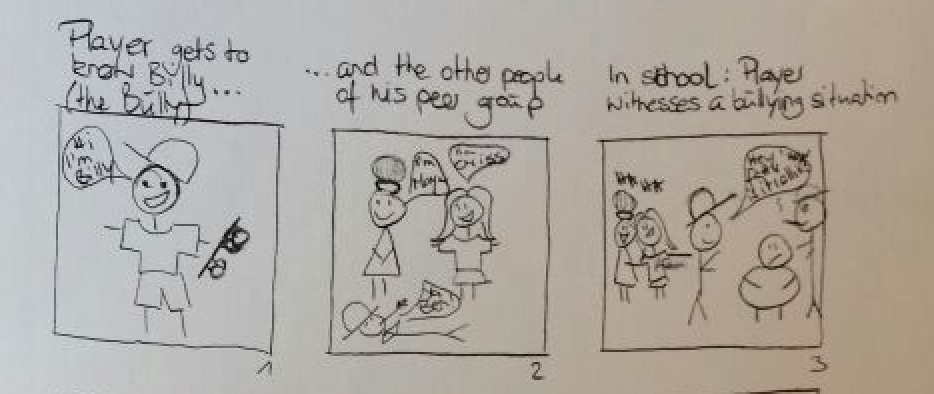 Player gets to
know Billy...
(the Bully)
Hi
I'm
Billy
1
...and the other people
of his peer group
I'm
I'm
2
In school: Player
witnesses a bullying situation
Hey
3